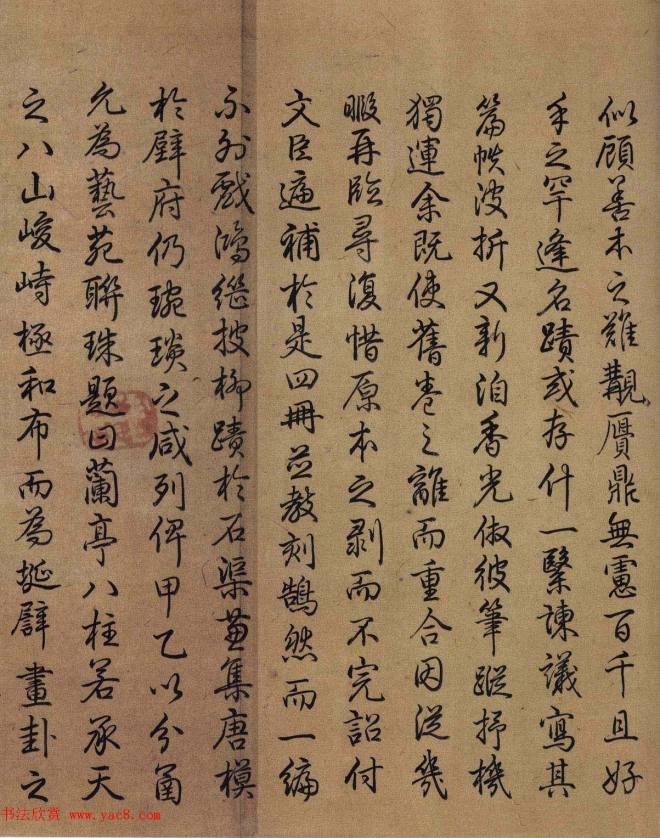 似顧善本之難覯贋鼎無慮百千且好
手之罕逢名蹟或存什一繄諫議寫其
篇帙波折又新洎香光倣彼筆蹤抒機
獨運余既使舊卷之離而重合因從幾
暇再臨尋復惜原本之剥而不完詔付
文臣遍補於是四冊並教刻鵠然而一編
不外戲鴻繼披柳蹟於石渠兼集唐模
於壁府仍琬琰之咸列俾甲乙以分函
允為藝苑聯珠題曰蘭亭八柱若承天
之八山峻峙極和布而為埏譬畫卦之
书法欣赏 www.yac8.com